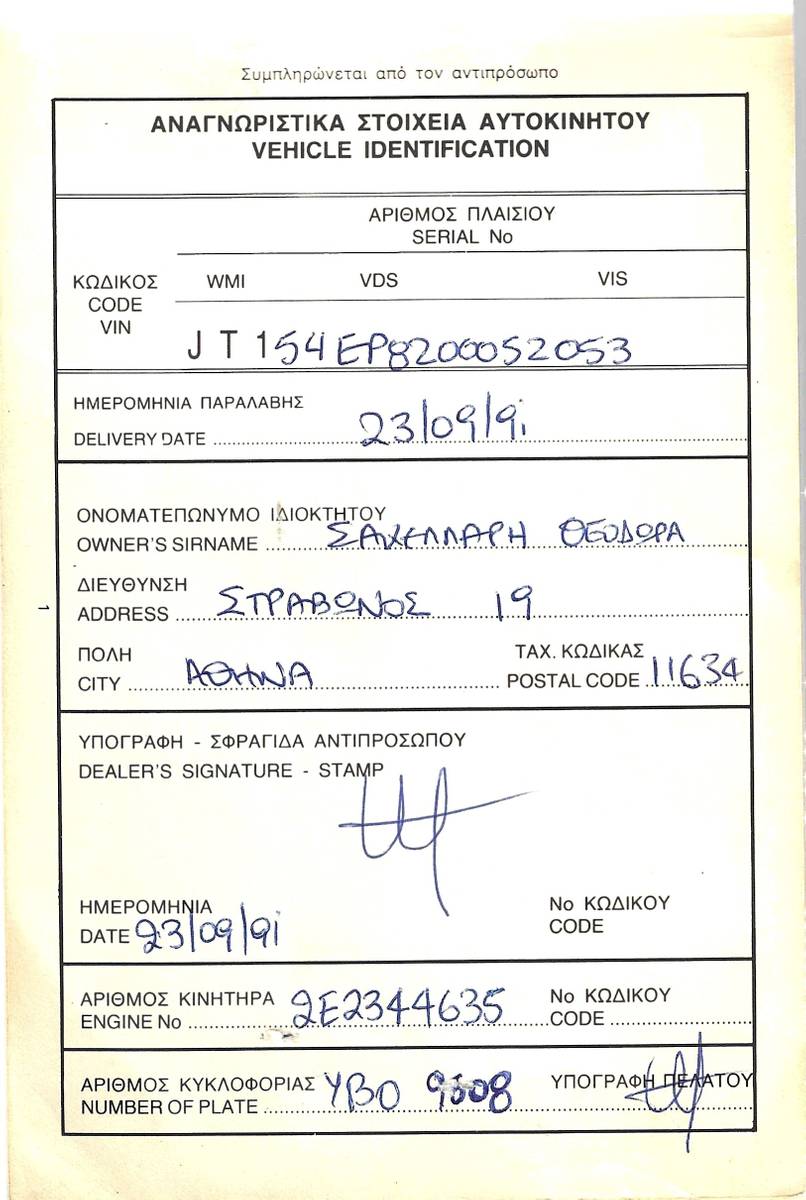 Συμπληρώνεται από τον αντιπρόσωπο
ΑΝΑΓΝΩΡΙΣΤΙΚΑ ΣΤΟΙΧΕΙΑ ΑΥΤΟΚΙΝΗΤΟΥ
VEHICLE IDENTIFICATION
ΑΡΙΘΜΟΣ ΠΛΑΙΣΙΟΥ
SERIAL No
ΚΩΔΙΚΟΣ
CODE
VIN
WMI VDS VIS
JT154EP8200052053
ΗΜΕΡΟΜΗΝΙΑ ΠΑΡΑΛΑΒΗΣ
DELIVERY DATE 23/09/91
ΟΝΟΜΑΤΕΠΩΝΥΜΟ ΙΔΙΟΚΤΗΤΟΥ
OWNER'S SIRNAME ΣΑΚΕΛΛΑΡΗ ΘΕΟΔΩΡΑ
ΔΙΕΥΘΥΝΣΗ
ADDRESS ΣΤΡΑΒΩΝΟΣ 19
1
ΠΟΛΗ ΤΑΧ. ΚΩΔΙΚΑΣ
CITY ΑΘΗΝΑ POSTAL CODE 11634
ΥΠΟΓΡΑΦΗ - ΣΦΡΑΓΙΔΑ ΑΝΤΙΠΡΟΣΩΠΟΥ
DEALER'S SIGNATURE - STAMP
ΗΜΕΡΟΜΗΝΙΑ Νο ΚΩΔΙΚΟΥ
DATE 23/09/91 CODE
ΑΡΙΘΜΟΣ ΚΙΝΗΤΗΡΑ Νο ΚΩΔΙΚΟΥ
ENGINE No 2E2344635 CODE
ΑΡΙΘΜΟΣ ΚΥΚΛΟΦΟΡΙΑΣ ΥΠΟΓΡΑΦΗ ΠΕΛΑΤΟΥ
NUMBER OF PLATE ΥΒΟ 9508